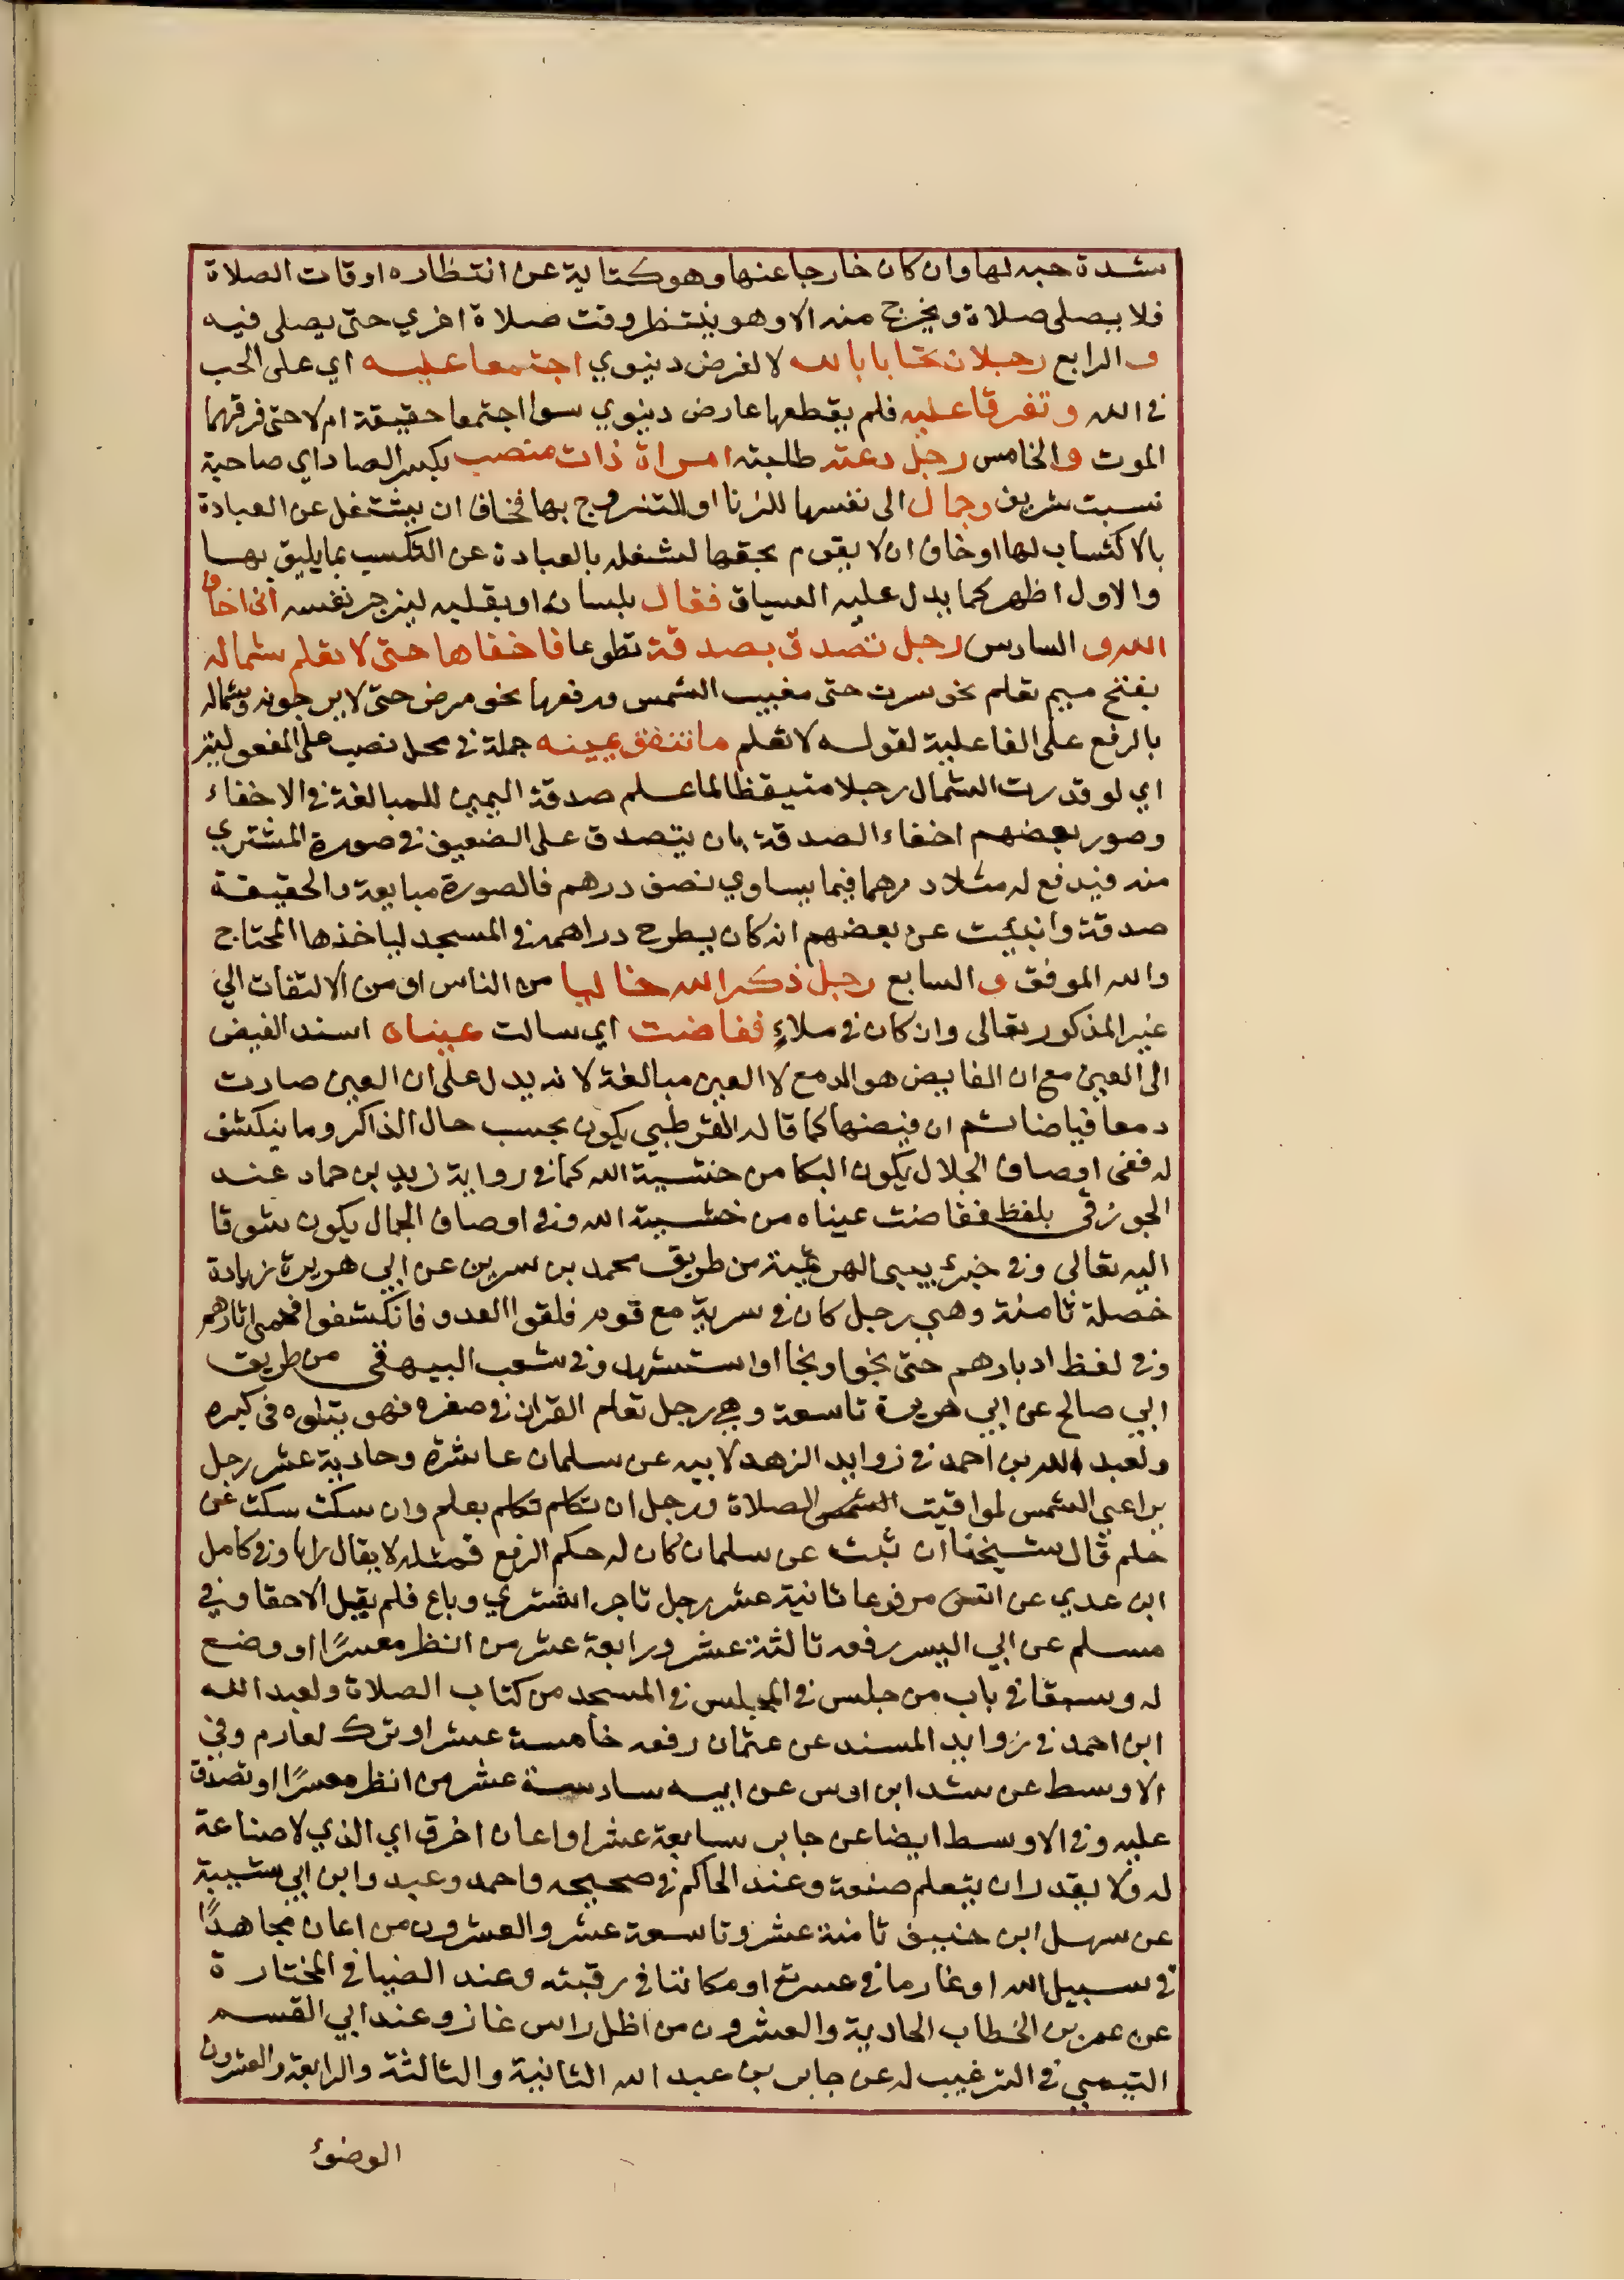 شدة حبه لها وان كان خارجا عنها وهو كناية عن انتظاره اوقات الصلاة
فلا يصلى صلاة ويخرج منه الا وهو ينتظر وقت صلاة اخري حتى يصلى فيه
و الرابع رجلان تحابا بالله لا لغرض دنيوي اجتمعا عليه اي على الحب
في الله وتفرقا عليه فلم يقطعها عارض دنيوي سوا اجتمعا حقيقة ام لا حتى فرقهما
الموت والخامس رجل دعته طلبته امراة ذات منصب بكسر الصاد اي صاحبة
نسبت شريف وجمال الى نفسها للزنا او للتزوج بها فخاف ان يشتغل عن العبادة
بالاكتساب لها او خاف ان لا يقوم بحقها لشغله بالعبادة عن التكسب بما يليق بها
والاول اظهر كما يدل عليه السياق فقال بلسانه او بقلبه ليزجر نفسه انى اخاف
الله و السادس رجل تصدق بصدقة تطوعا فاخفاها حتى لا تعلم شماله
بفتح ميم تعلم نحو سرت حتى مغيب الشمس ورفعها نحو مرض حتى لا يرجونه وشماله
بالرفع على الفاعلية لقوله لا تعلم ما تنفق يمينه جملة في محل نصب على المفعولية
اي لو قدرت الشمال رجلا متيقظا لما علم صدقة اليمين للمبالغة في الاخفاء
وصور بعضهم اخفاء الصدقة بان يتصدق على الضعيف في صورة المشتري
منه فيدفع له مثلا درهما فيما يساوي نصف درهم فالصورة مبايعة والحقيقة
صدقة وانبئت عن بعضهم انه كان يطرح دراهمه في المسجد لياخذها المحتاج
والله الموفق و السابع رجل ذكر الله خاليا من الناس او من الالتفات الي
غير المذكور تعالى وان كان في ملاءٍ ففاضت اي سالت عيناه اسند الفيض
الى العين مع ان الفايض هو الدمع لا العين مبالغة لانه يدل على ان العين صارت
دمعا فياضا ثم ان فيضها كما قاله القرطبي يكون بحسب حال الذاكر وما ينكشف
له ففى اوصاف الجلال يكون البكا من خشية الله كما في رواية زيد بن حماد عند
الجوزقى بلفظ ففاضت عيناه من خشية الله وفي اوصاف الجمال يكون شوقا
اليه تعالى وفي خبر يحيى الهرثمية من طريق محمد بن سرين عن ابي هريرة زيادة
خصلة ثامنة وهي رجل كان في سرية مع قوم فلقوا العدو فانكشفوا فحمى اثارهم
وفي لفظ ادبارهم حتى نجوا ونجا او استشهد وفي شعب البيهقى من طريق
ابي صالح عن ابي هريرة تاسعة وهي رجل تعلم القران في صغره فهو يتلوه في كبره
ولعبد الله بن احمد في زوايد الزهد لابيه عن سلمان عاشرة وحادية عشر رجل
يراعي الشمس لمواقيت الشمس الصلاة ورجل ان تكلم تكلم بعلم وان سكت سكت عن
حلم قال شيخنا ان ثبت عن سلمان كان له حكم الرفع فمثله لا يقال رايا وفي كامل
ابن عدي عن انس مرفوعا ثانية عشر رجل تاجر اشتري وباع فلم يقل الا حقا وفي
مسلم عن ابي اليسر رفعه ثالثة عشر ورابعة عشر من انظر معسرًا او وضع
له وسبقا في باب من جلس في المجلس في المسجد من كتاب الصلاة ولعبد الله
ابن احمد في زوايد المسند عن عثمان رفعه خامسة عشر او ترك لغارم وفي
الاوسط عن شداد ابن اوس عن ابيه سادسة عشر من انظر معسرًا او تصدق
عليه وفي الاوسط ايضا عن جابر سابعة عشر او اعان اخرق اي الذي لا صناعة
له ولا يقدر ان يتعلم صنعة وعند الحاكم في صحيحه واحمد وعبد وابن ابي شيبة
عن سهل ابن حنيف ثامنة عشر وتاسعة عشر والعشرون من اعان مجاهدًا
في سبيل الله او غارما في عسرته او مكاتبا في رقبته وعند الضيا في المختارة
عن عمر بن الخطاب الحادية والعشرون من اظل راس غاز وعند ابي القسم
التيمي في الترغيب له عن جابر بن عبد الله الثانية والثالثة والرابعة والعشرون
الوضوء